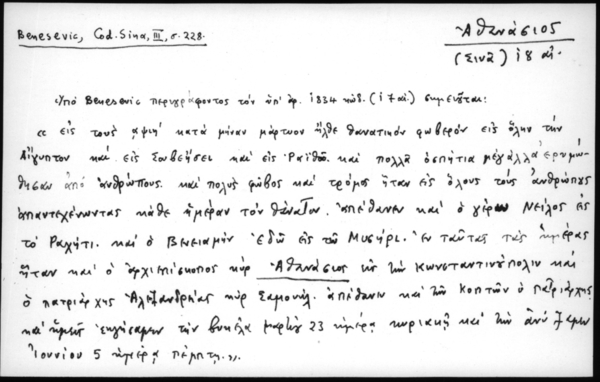 Benesevic, Cod. Sina, III, σ. 228.
Ἀθανάσιος
(Σινᾶ) ι8 αἰ.
Ὑπὸ Benesevic περιγράφοντος τὸν ὑπ' ἀρ. 1834 κώδ. (17 αἰ.) σημειοῦται:
« εἰς τοὺς αψιη' κατὰ μῆναν μάρτιον ἦλθε θανατικὸν φωβερὸν εἰς ὅλην τὴν
Αἴγυπτον καὶ εἰς Σουβέησει καὶ εἰς Ραϊθοῦ καὶ πολλὰ ὁσπήτια μεγάλλα ἐρημώ-
θησαν ἀπὸ ἀνθρώπους. καὶ πολὺς φώβος καὶ τρόμος ἦταν εἰς ὅλους τοὺς ἀνθρώπους
ἀπαντεχένωντας κάθε ἡμέραν τὸν θάνατον. ἀπέθανεν καὶ ὁ γέρων Νεῖλος εἰς
τὸ Ραχήτι. καὶ ὁ Βενειαμὴν ἐδῶ εἰς τὸ Μισῆρι. Ἐν ταύταις ταῖς ἡμέρας
ἦταν καὶ ὁ ἀρχιεπίσκοπος κὺρ Ἀθανάσιος εἰς τὴν Κωνσταντινούπολιν καὶ
ὁ πατριάρχης Ἀλεξανδρείας κὺρ Σαμουήλ. ἀπέθανεν καὶ τῶν κοπτῶν ὁ πατριάρχης
καὶ ἡμεῖς τὴν μαρτίου 23 ἡμέρα κυριακῇ καὶ τὴν
Ἰουνίου 5 ἡμέρα πέμπτη.».